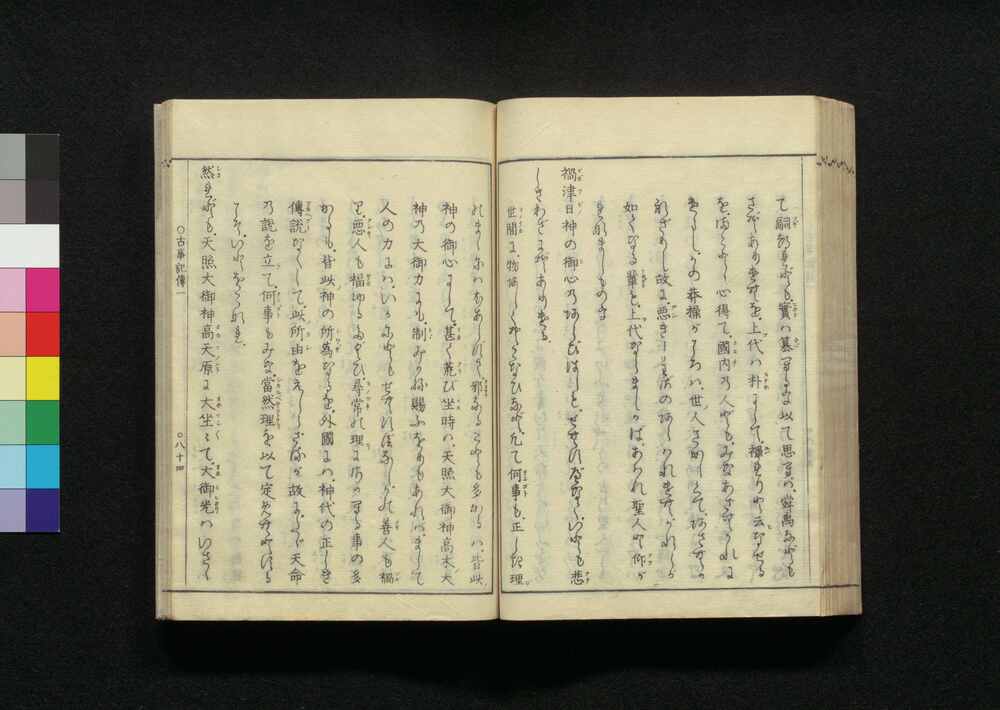 て嗣ぬれども、實は簒へるさまを以て思へば、舜禹なども
さぞありけむを、上代は朴にして、禪れりと云なせる
を、まことゝ心得て、國内の人ども、みなあざむかれに
けらし、かの莽操がころは、世人さかしくて、あざむか
れざりし故に、悪きしわざのあらはれけむ、かれらが
如くなる輩も、上代ならましかば、あはれ聖人と仰が
れなましものを
禍津日神の御心のあらびはしも、せむすべなく、いとも悲
しきわざにぞありける
世間に、物あしくそこなひなど、凡て何事も、正しき理
のまゝにはえあらずて、邪なることも多かるは、皆此
神の御心にして、甚く荒び坐時は、天照大御神高木大
神の大御力にも、制みかね賜ふをりもあれば、まして
人の力には、いかにともせむすべなし、かの善人も禍
り、悪人も福ゆるたぐひ、尋常の理にさかへる事の多
かるも、皆此神の所為なるを、外國には、神代の正しき
傳説なくして、此所由をえしらざるが故に、たゞ天命
の説を立て、何事もみな、當然理を以て定めむとする
こそ、いとをこなれ
然れども、天照大御神高天原に大坐〻て、大御光はいさゝ
○古事記傳一 ○八十四